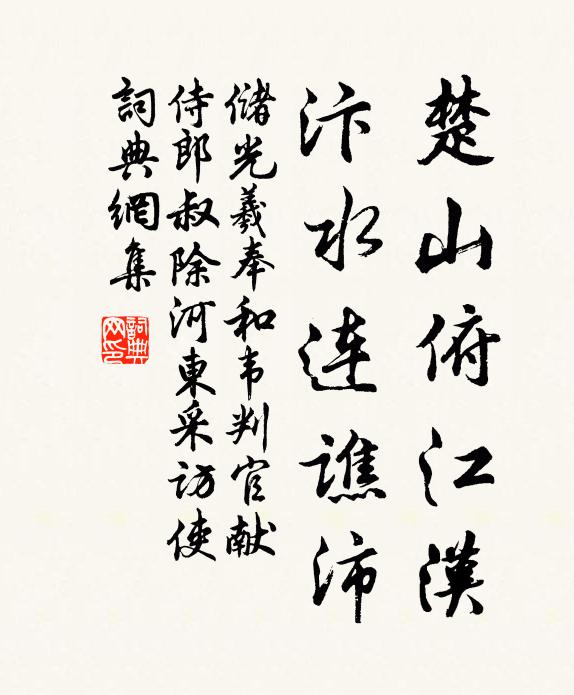 楚山俯江漢
汴水连譙沛
储光羲奉和韦判官献
侍郎叔除河東采访使
詞典網集
詞典网印